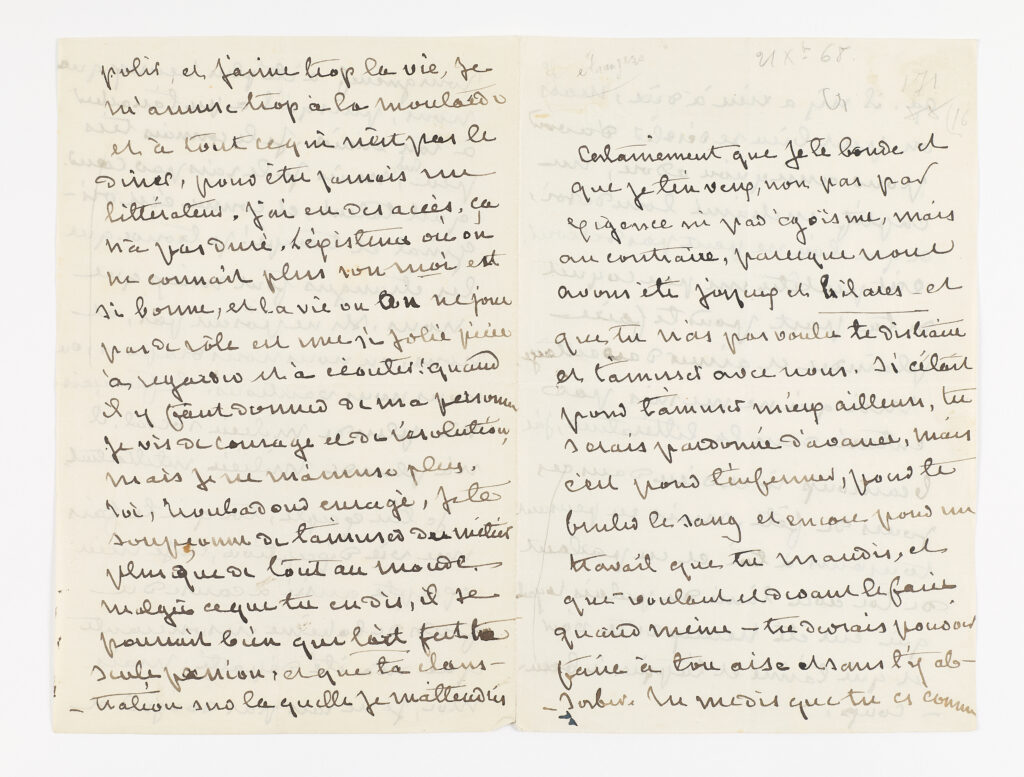 polis, et j'aime trop la vie, je
m'amuse trop à la moutarde
et à tout ce qui n'est pas le
diner, pour être jamais un
littérateur. J'ai eu des accès, ça
n'a pas duré. L'existence où on
ne connaît plus son moi est
si bonne, et la vie où on ne joue
pas de rôle est une si jolie pièce
à regarder et à écouter! quand
il y faut donner de ma personne
je vis de courage et de résolution,
mais je ne m'amuse plus.
Toi, troubadour enragé, je te
soupçonne de t'amuser du métier
plus que de tout au monde
malgré ce que tu en dis, il se
pourrait bien que l'art fut ta
seule passion, et que ta claus-
-tration sur laquelle je m'attendris
21 Xr 68.
171
Certainement que je te boude et
que je t'en veux, non pas par
exigence ni par égoïsme, mais
au contraire, parceque nous
avons été joyeux et hilares et
que tu n'as pas voulu te distraire
et t'amuser avec nous. Si c'était
pour t'amuser mieux ailleurs, tu
serais pardonné d'avance, mais
c'est pour t'enfermer, pour te
bruler le sang et encore pour un
travail que tu maudis, et
que voulant et devant le faire
quand même – tu devrais pouvoir
faire à ton aise et sans t'y ab-
-sorber. Tu me dis que tu es comme